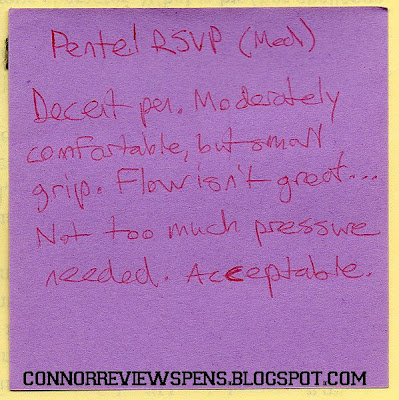 Pentel RSVP (Med)
Decent pen. Moderately
comfortable, but small
grip. Flow isn't great...
Not too much pressure
needed. Acceptable.
CONNORREVIEWSPENS.BLOGSPOT.COM